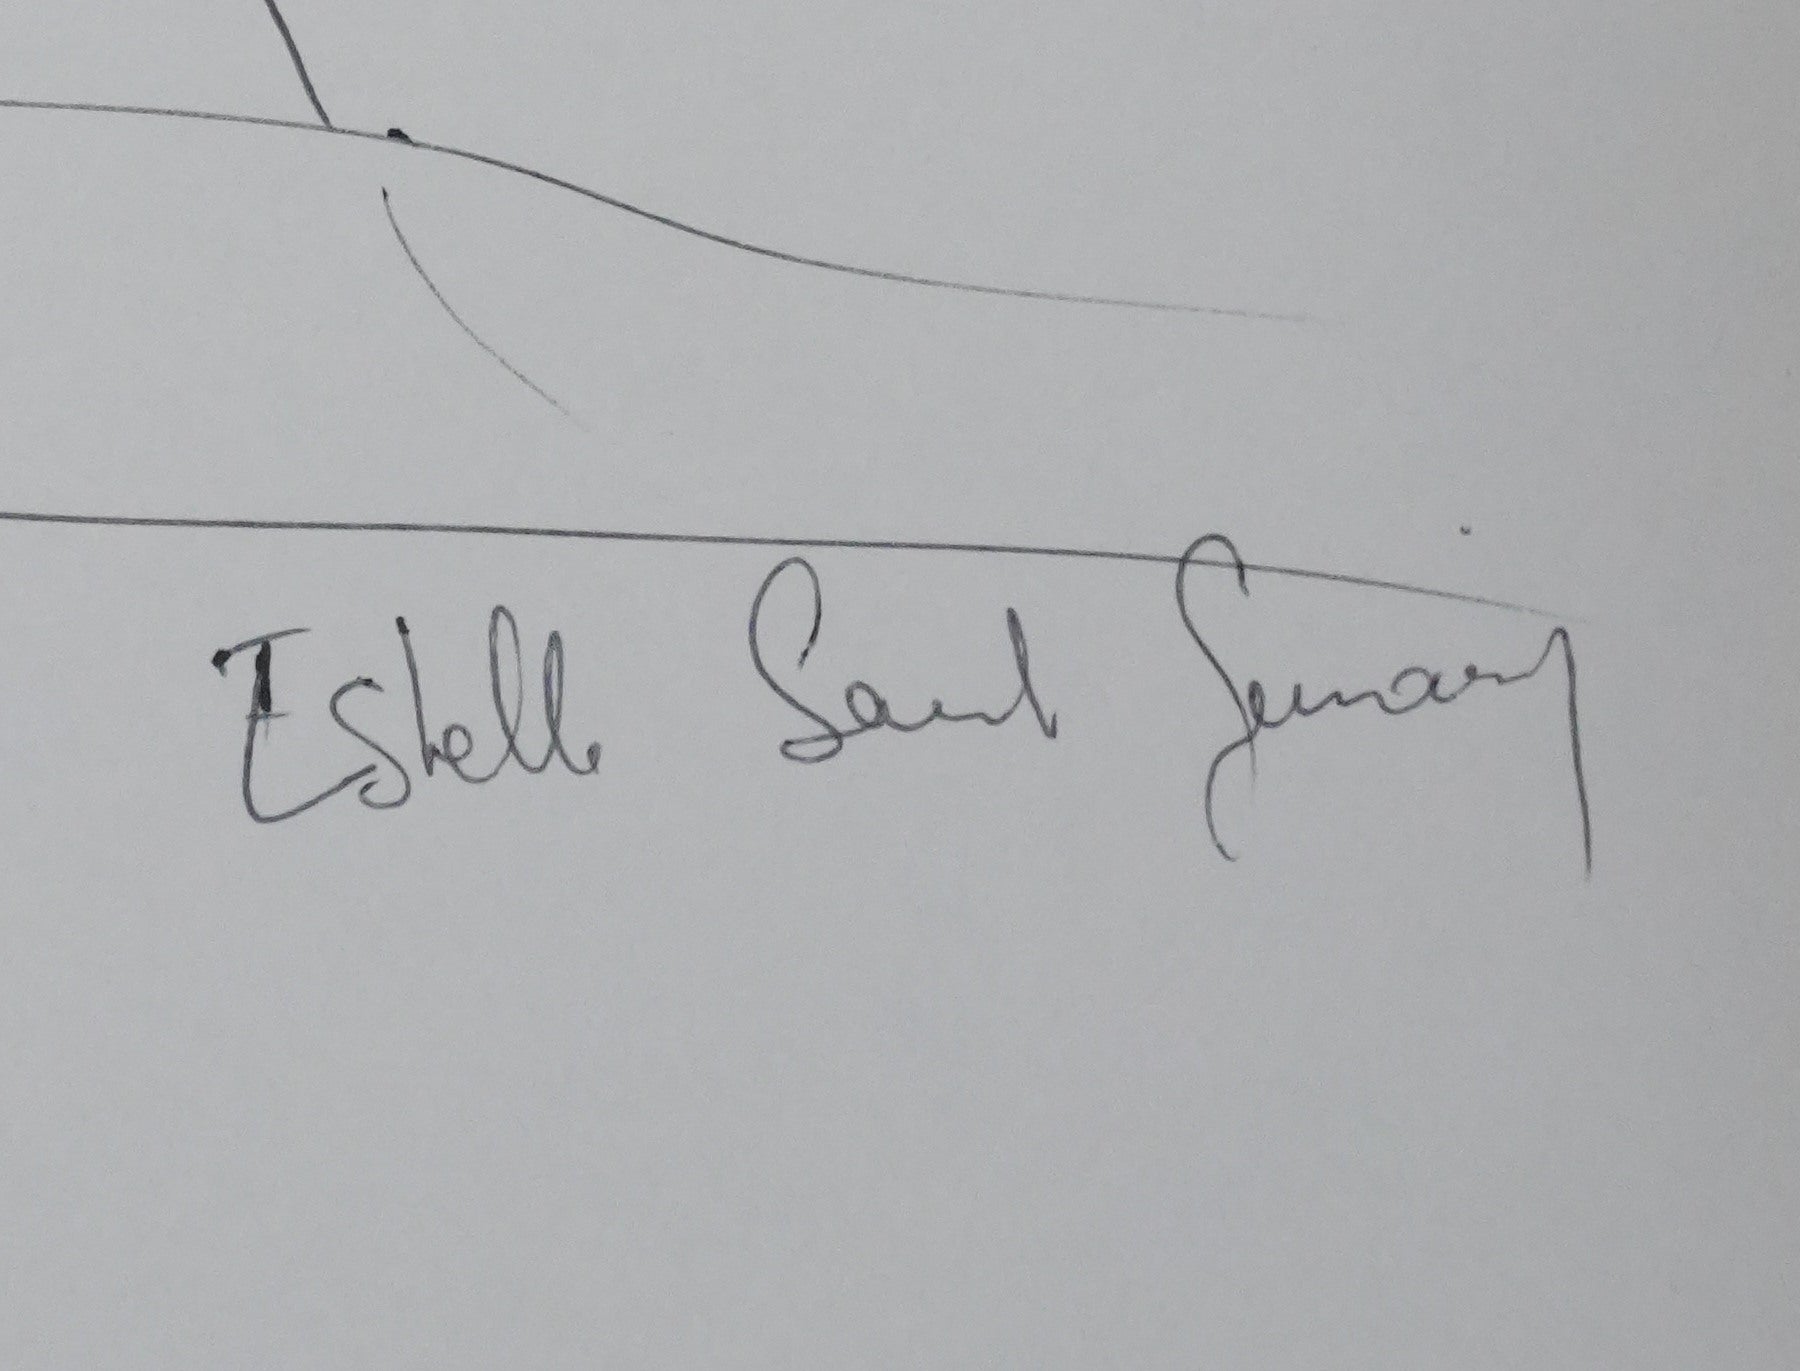 Estelle Saint Germain